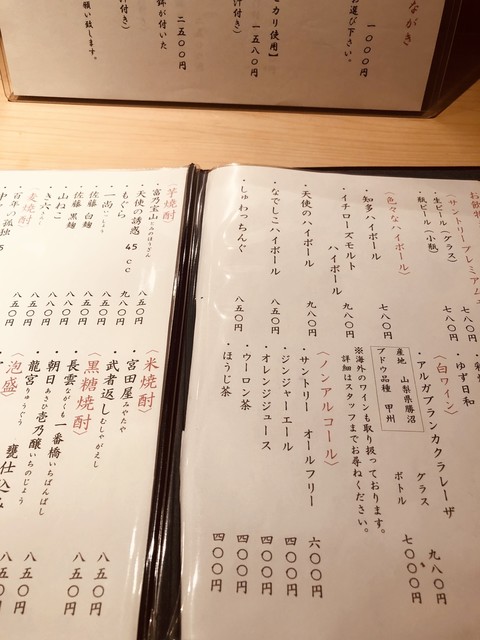 ながき
お選び下さい。
一〇〇〇円
カリ使用】
一五八〇円
汁付き)
鉢が付いた
二五〇〇円
付き)
願い致します。
お飲物
(サントリープレミアム
・生ビール(グラス)
七八〇円
・瓶ビール(小瓶)
七八〇円
〈色々なハイボール〉
・知多ハイボール
七八〇円
・イチローズモルト
ハイボール
九八〇円
・天使のハイボール
九八〇円
・なでしこハイボール
八五〇円
・しゅわっちんぐ
八五〇円
・ゆず日和
〈白ワイン〉
・アルガブランカクラレーザ
グラス
九八〇円
ボトル
七〇〇〇円
産地 山梨県勝沼
ブドウ品種 甲州
※海外のワインも取り扱っております。
詳細はスタッフまでお尋ねください。
〈ノンアルコール〉
・サントリー オールフリー
六〇〇円
・ジンジャーエール
四〇〇円
・オレンジジュース
四〇〇円
・ウーロン茶
四〇〇円
・ほうじ茶
四〇〇円
芋焼酎
・富乃宝山とみのほうざん
八五〇円
・天使の誘惑 45cc
九八〇円
・もぐら
八五〇円
・一尚いっしょう
八五〇円
・佐藤 白麹
八五〇円
・佐藤 黒麹
八五〇円
・山ねこ
八五〇円
・き六きろく
八五〇円
麦焼酎
・百年の孤独
〈米焼酎〉
・宮田屋みやたや
八五〇円
・武者返しむしゃがえし
八五〇円
〈黒糖焼酎〉
・長雲ながくも 一番橋いちばんばし
八五〇円
・朝日あさひ 壱乃醸いちのじょう
八五〇円
・龍宮りゅうぐう 甕仕込み
〈泡盛〉